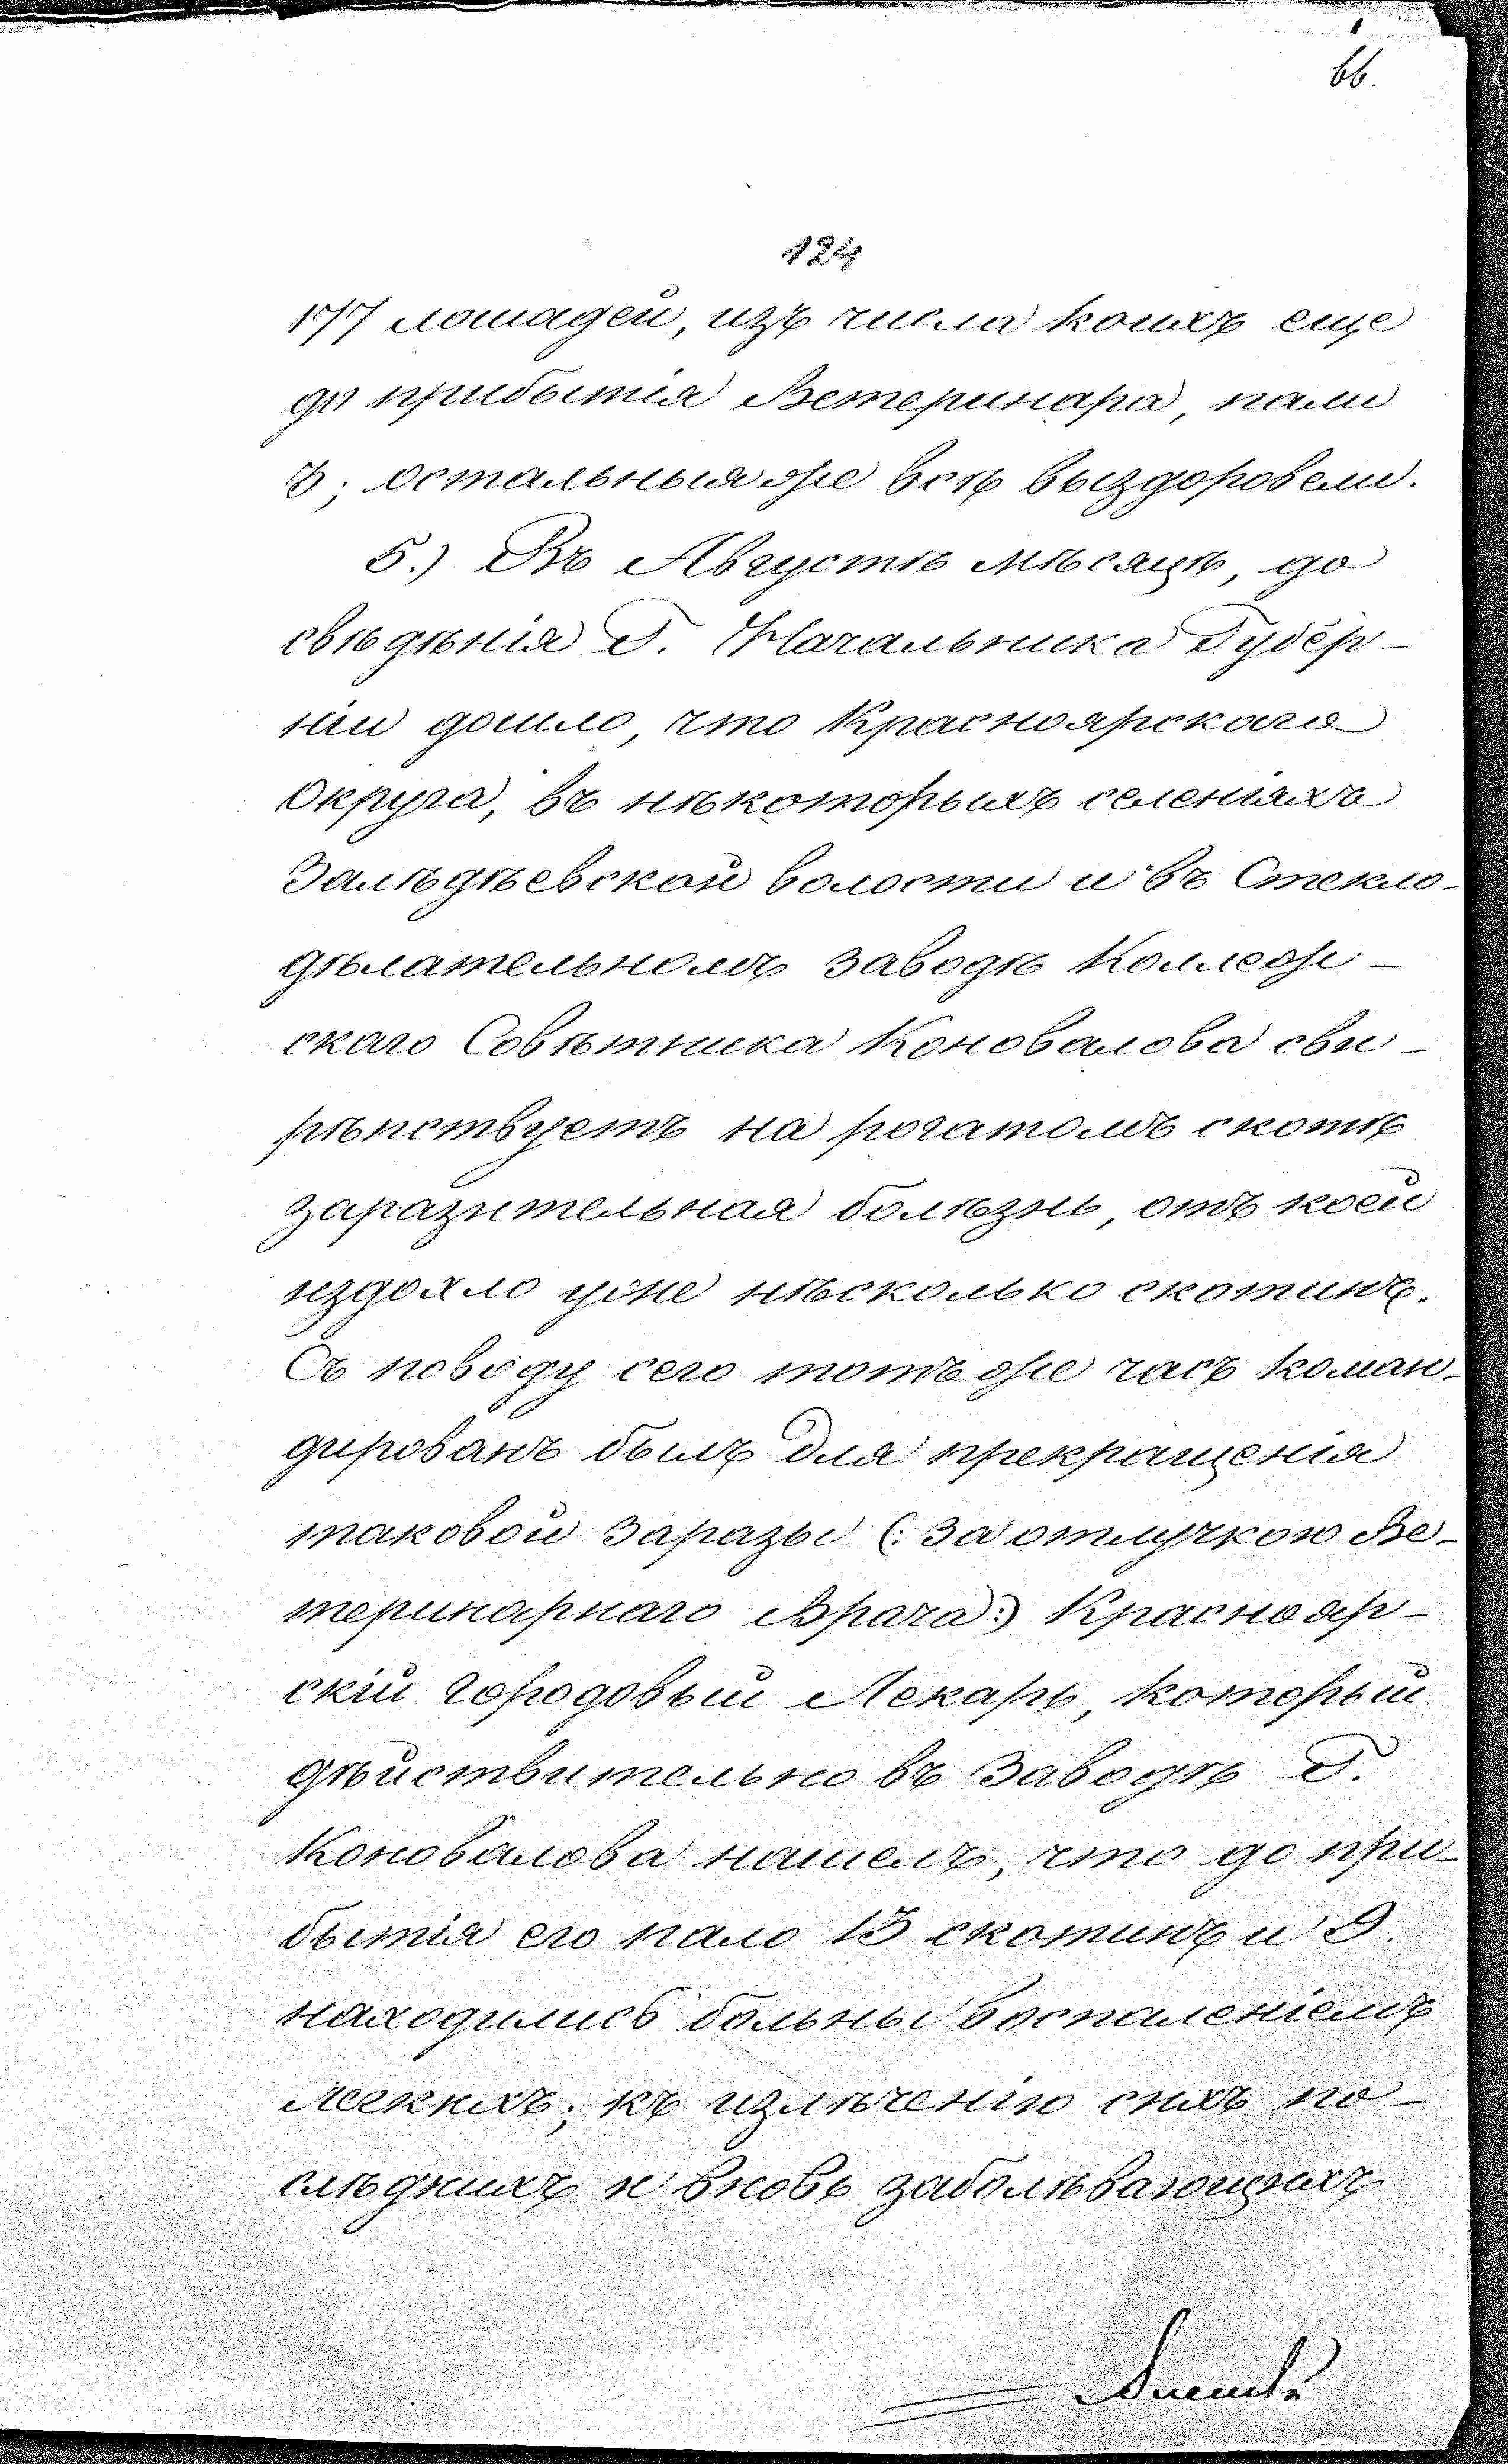 66.
124
177 лошадей, изъ числа коихъ еще
до прибытія Ветеринара, пали
3; остальныя же всѣ выздоровели.
5.) Въ Августѣ мѣсяцѣ, до
свѣдѣнія Г. Начальника Губер-
ніи дошло, что Красноярскаго
Округа, въ нѣкоторыхъ селеніяхъ
Заледѣевской волости и въ Стекло-
дѣлательномъ заводѣ Коллеж-
скаго Совѣтника Коновалова сви-
рѣпствуетъ на рогатомъ скотѣ
заразительная болѣзнь, отъ коей
издохло уже нѣсколько скотинъ.
Съ поводу сего тотъ же часъ коман-
дированъ былъ для прекращенія
таковой заразы (: за отлучкою Ве-
теринарнаго Врача:) Краснояр-
скій городовый Лекарь, который
дѣйствительно въ заводѣ Г.
Коновалова нашелъ, что до при-
бытія его пало 13 скотинъ и 9.
находились больны воспаленіемъ
легкихъ; къ излѣченію сихъ по-
слѣднихъ и вновь заболѣвающихъ